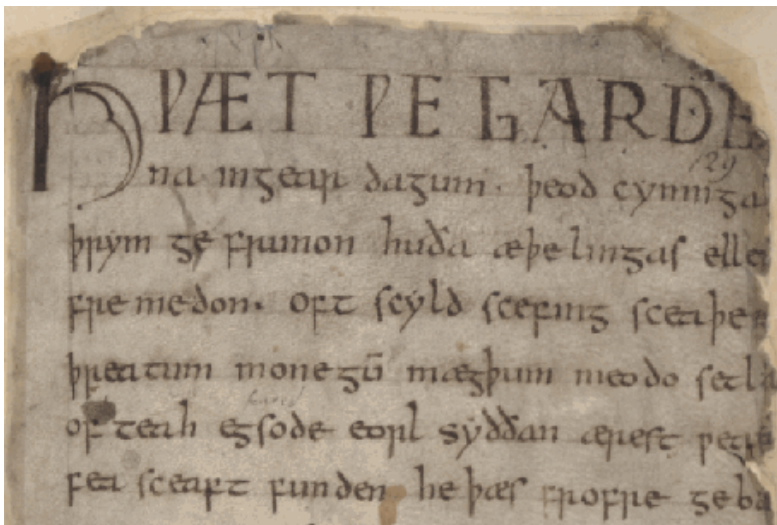 HǷÆT ǷE GARDE
na ingear dagum. þeod cyninga
þrym ge frunon huða æþelingas elle
fre medon. oft scyld scefing sceaþe
þreatum monegū mægþum meodo setla
of teah egsode eorl syððan ærest ƿear
fea sceaft funden he þæs frofre geba
129